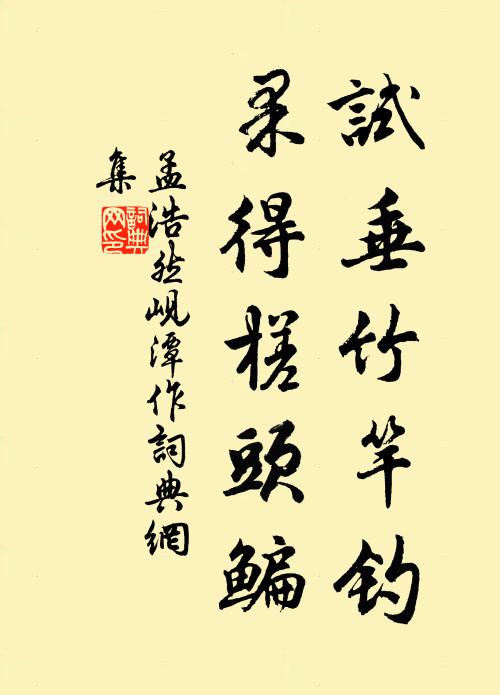 試垂竹竿釣
果得槎頭鯿
孟浩然峴潭作詞典網
集
詞典
网印